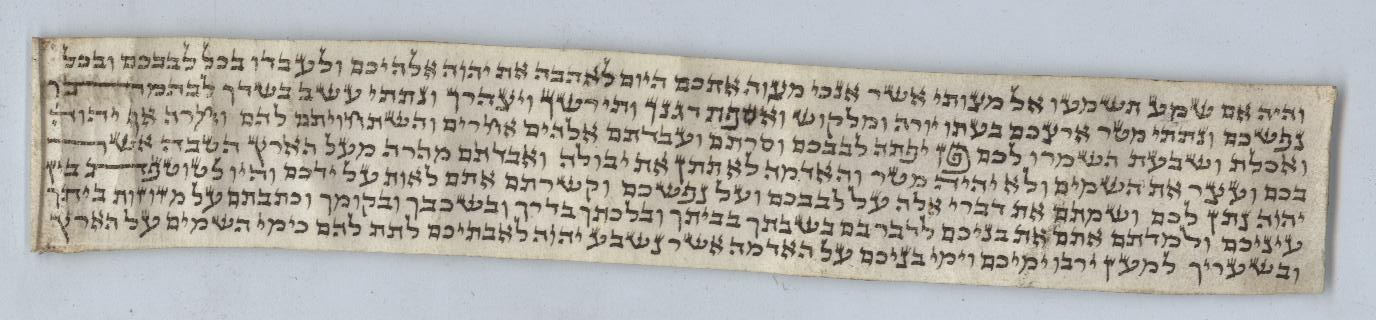 והיה אם שמע תשמעו אל מצותי אשר אנכי מצוה אתכם היום לאהבה את יהוה אלהיכם ולעבדו בכל לבבכם ובכל
נפשכם ונתתי מטר ארצכם בעתו יורה ומלקוש ואספת דגנך ותירשך ויצהרך ונתתי עשב בשדך לבהמתך
ואכלת ושבעת השמרו לכם פן יפתה לבבכם וסרתם ועבדתם אלהים אחרים והשתחויתם להם וחרה אף יהוה
בכם ועצר את השמים ולא יהיה מטר והאדמה לא תתן את יבולה ואבדתם מהרה מעל הארץ הטבה אשר
יהוה נתן לכם ושמתם את דברי אלה על לבבכם ועל נפשכם וקשרתם אתם לאות על ידכם והיו לטוטפת בין
עיניכם ולמדתם אתם את בניכם לדבר בם בשבתך בביתך ובלכתך בדרך ובשכבך ובקומך וכתבתם על מזוזות ביתך
ובשעריך למען ירבו ימיכם וימי בניכם על האדמה אשר נשבע יהוה לאבתיכם לתת להם כימי השמים על הארץ